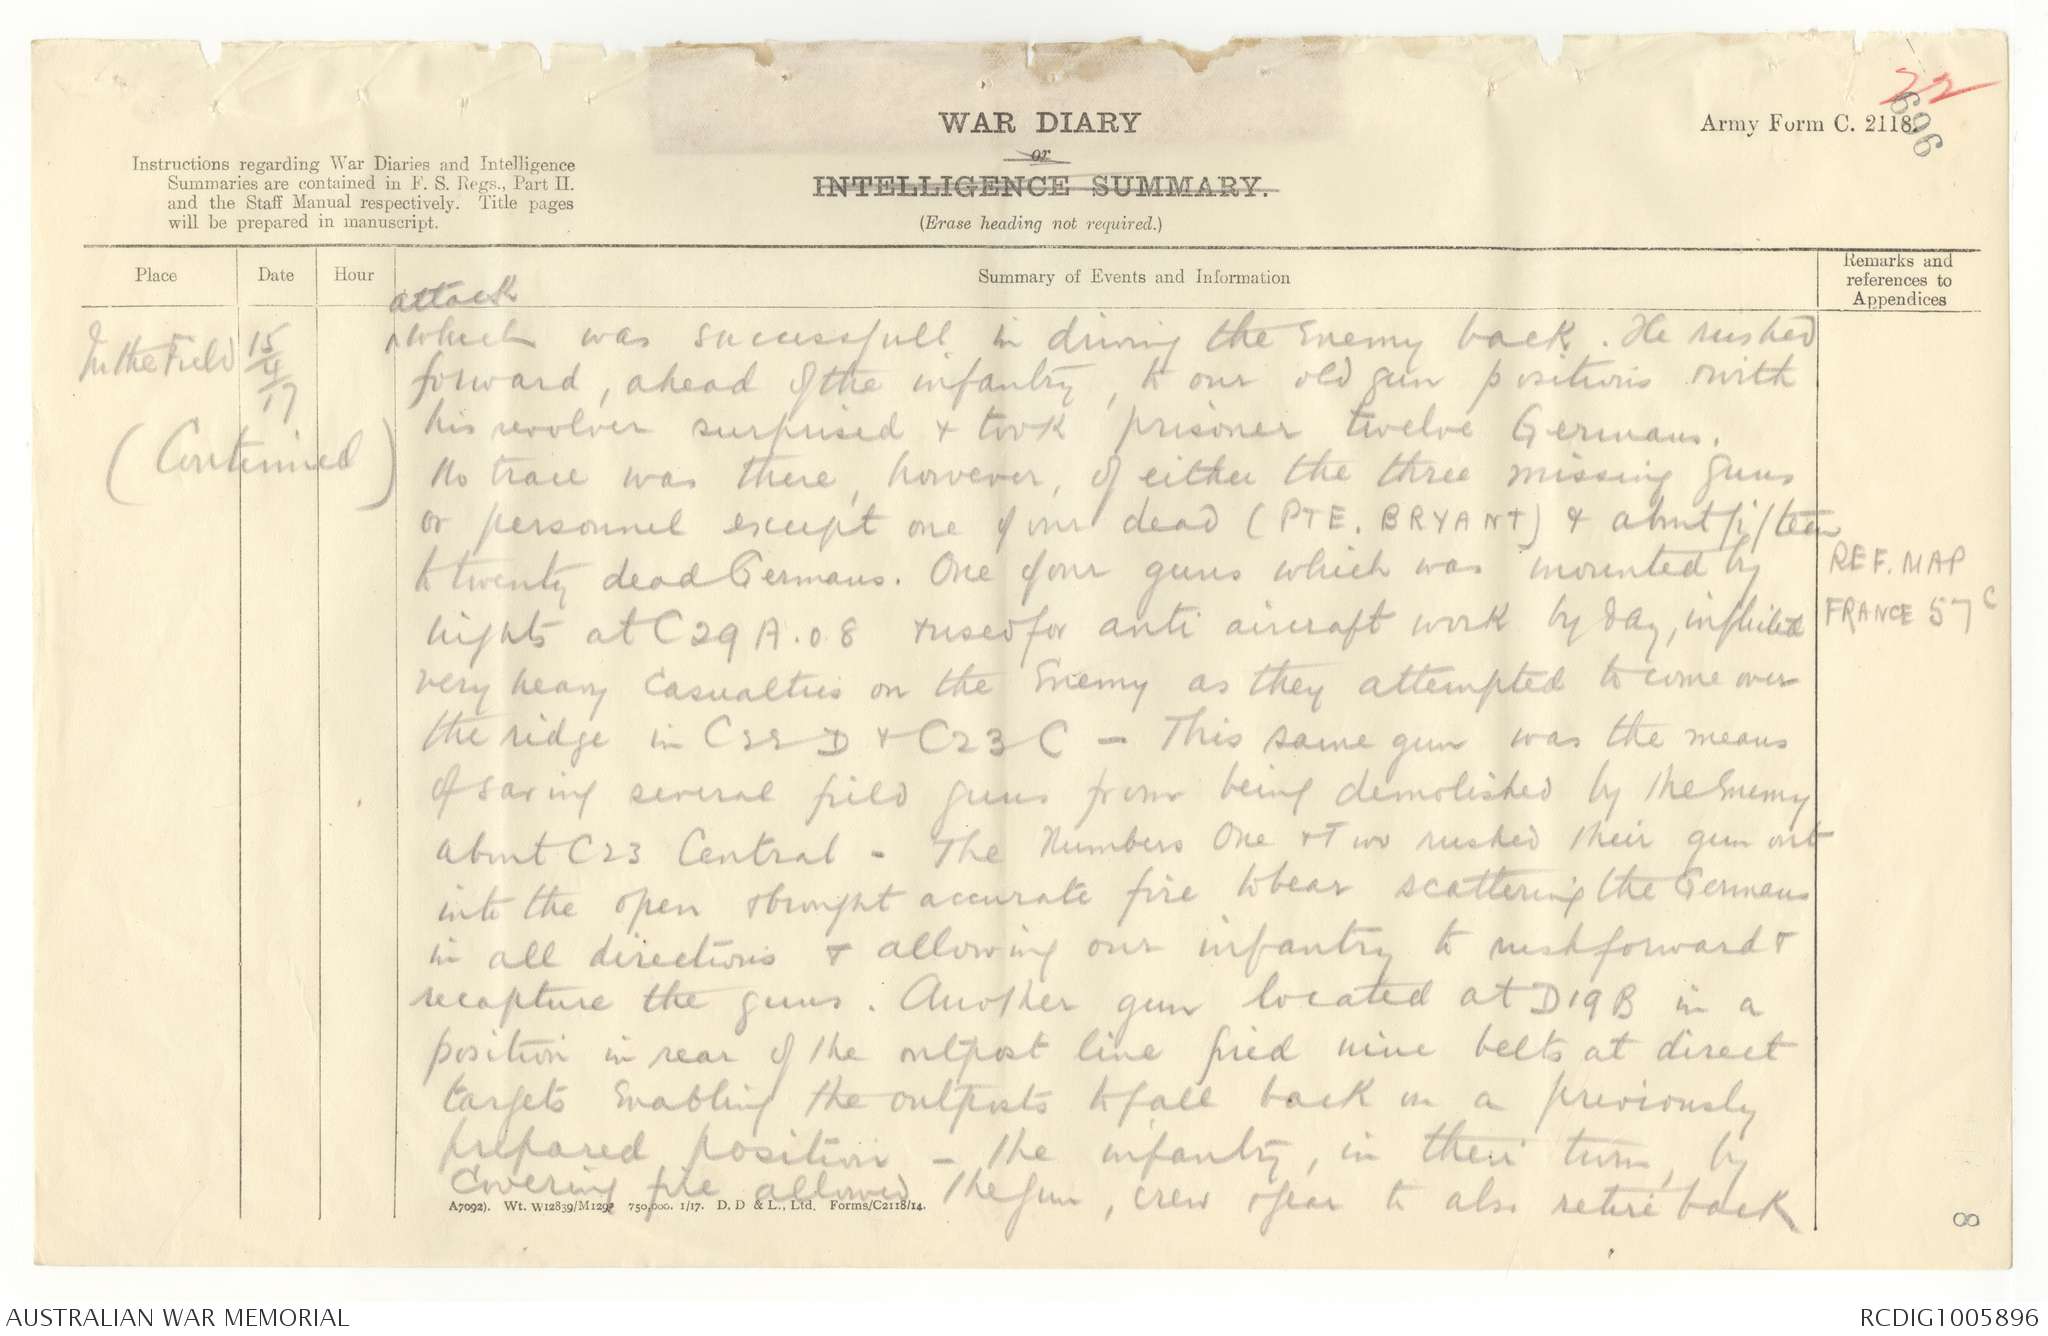 22
696
WAR DIARY
or
INTELLIGENCE SUMMARY.
(Erase heading not required.)
Army Form C. 2118.
Instructions regarding War Diaries and Intelligence
Summaries are contained in F. S. Regs., Part II.
and the Staff Manual respectively. Title pages
will be prepared in manuscript.
Place
Date
Hour
Summary of Events and Information
Remarks and
references to
Appendices
In the Field
15
4
17
(Continued)
attack
which was successfull in driving the Enemy back. He rushed
forward, ahead of the infantry, to our old gun positions & with
his revolver surprised & took prisoner twelve Germans.
No trace was there, however, of either the three missing guns
or personnel except one of our dead (PTE. BRYANT) & about fifteen
to twenty dead Germans. One of our guns which was mounted by
nights at C29A.08 & used for anti aircraft work by day, inflicted
very heavy casualties on the Enemy as they attempted to come over
the ridge in C22D & C23C - This same gun was the means
of saving several field guns from being demolished by the Enemy
about C23 Central - The Numbers One & Two rushed their gun out
into the open & brought accurate fire to bear scattering the Germans
in all directions & allowing our infantry to rush forward &
recapture the guns. Another gun located at D19B in a
position in rear of the outpost line fired nine belts at direct
targets Enabling the outposts to fall back on a previously
prepared position - the infantry, in their turn, by
covering fire allowed the gun, crew & gear to also retire back
REF. MAP
FRANCE 57C
A7092). Wt. W12839/M1297 750,000. 1/17. D. D & L., Ltd. Forms/C2118/14.
8
AUSTRALIAN WAR MEMORIAL
RCDIG1005896